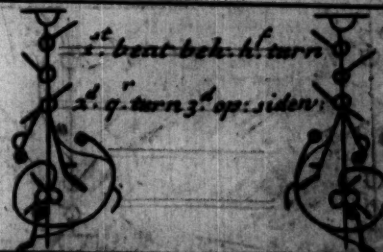 1.st beat beh: h.f turn
2.d q.r turn 3.d op: siden: